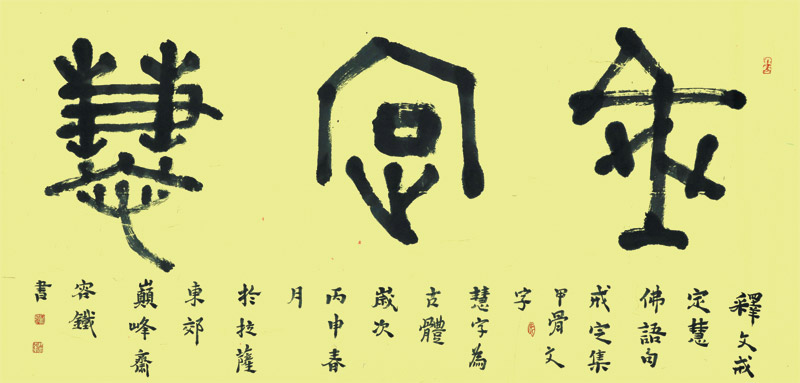 戒定慧
釋文戒
定慧
佛語句
戒定集
甲骨文
字
慧字為
古體
歲次
丙申春
月
於拉薩
東郊
巔峰齋
容鐵
書